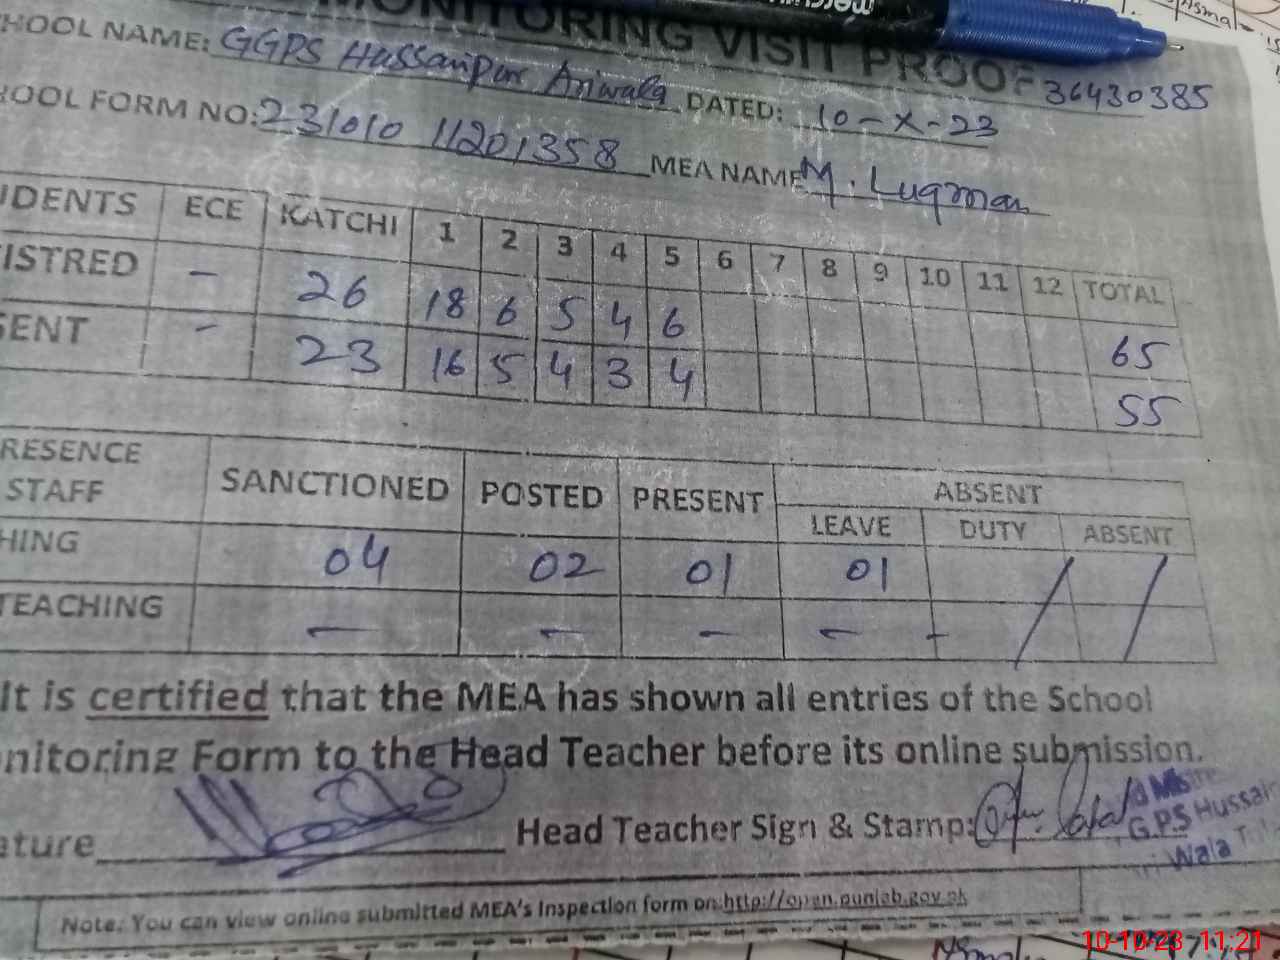 MONITORING VISIT PROOF
HOOL NAME: GGPS Hussainpur Ariwala 36430385
DATED: 10-X-23
OOL FORM NO: 231010 11201358 MEA NAME M. Luqman
UDENTS ECE KATCHI 1 2 3 4 5 6 7 8 9 10 11 12 TOTAL
ISTRED - 26 18 6 5 4 6 65
SENT - 23 16 5 4 3 4 55
RESENCE STAFF SANCTIONED POSTED PRESENT ABSENT
LEAVE DUTY ABSENT
HING 04 02 01 01 / /
TEACHING - - - - -
It is certified that the MEA has shown all entries of the School
nitoring Form to the Head Teacher before its online submission.
ature Head Teacher Sign & Stamp:
G.P.S Hussain
Wala
Note: You can view online submitted MEA's Inspection form on:http://open.punjab.gov.pk
10-10-23 11:21